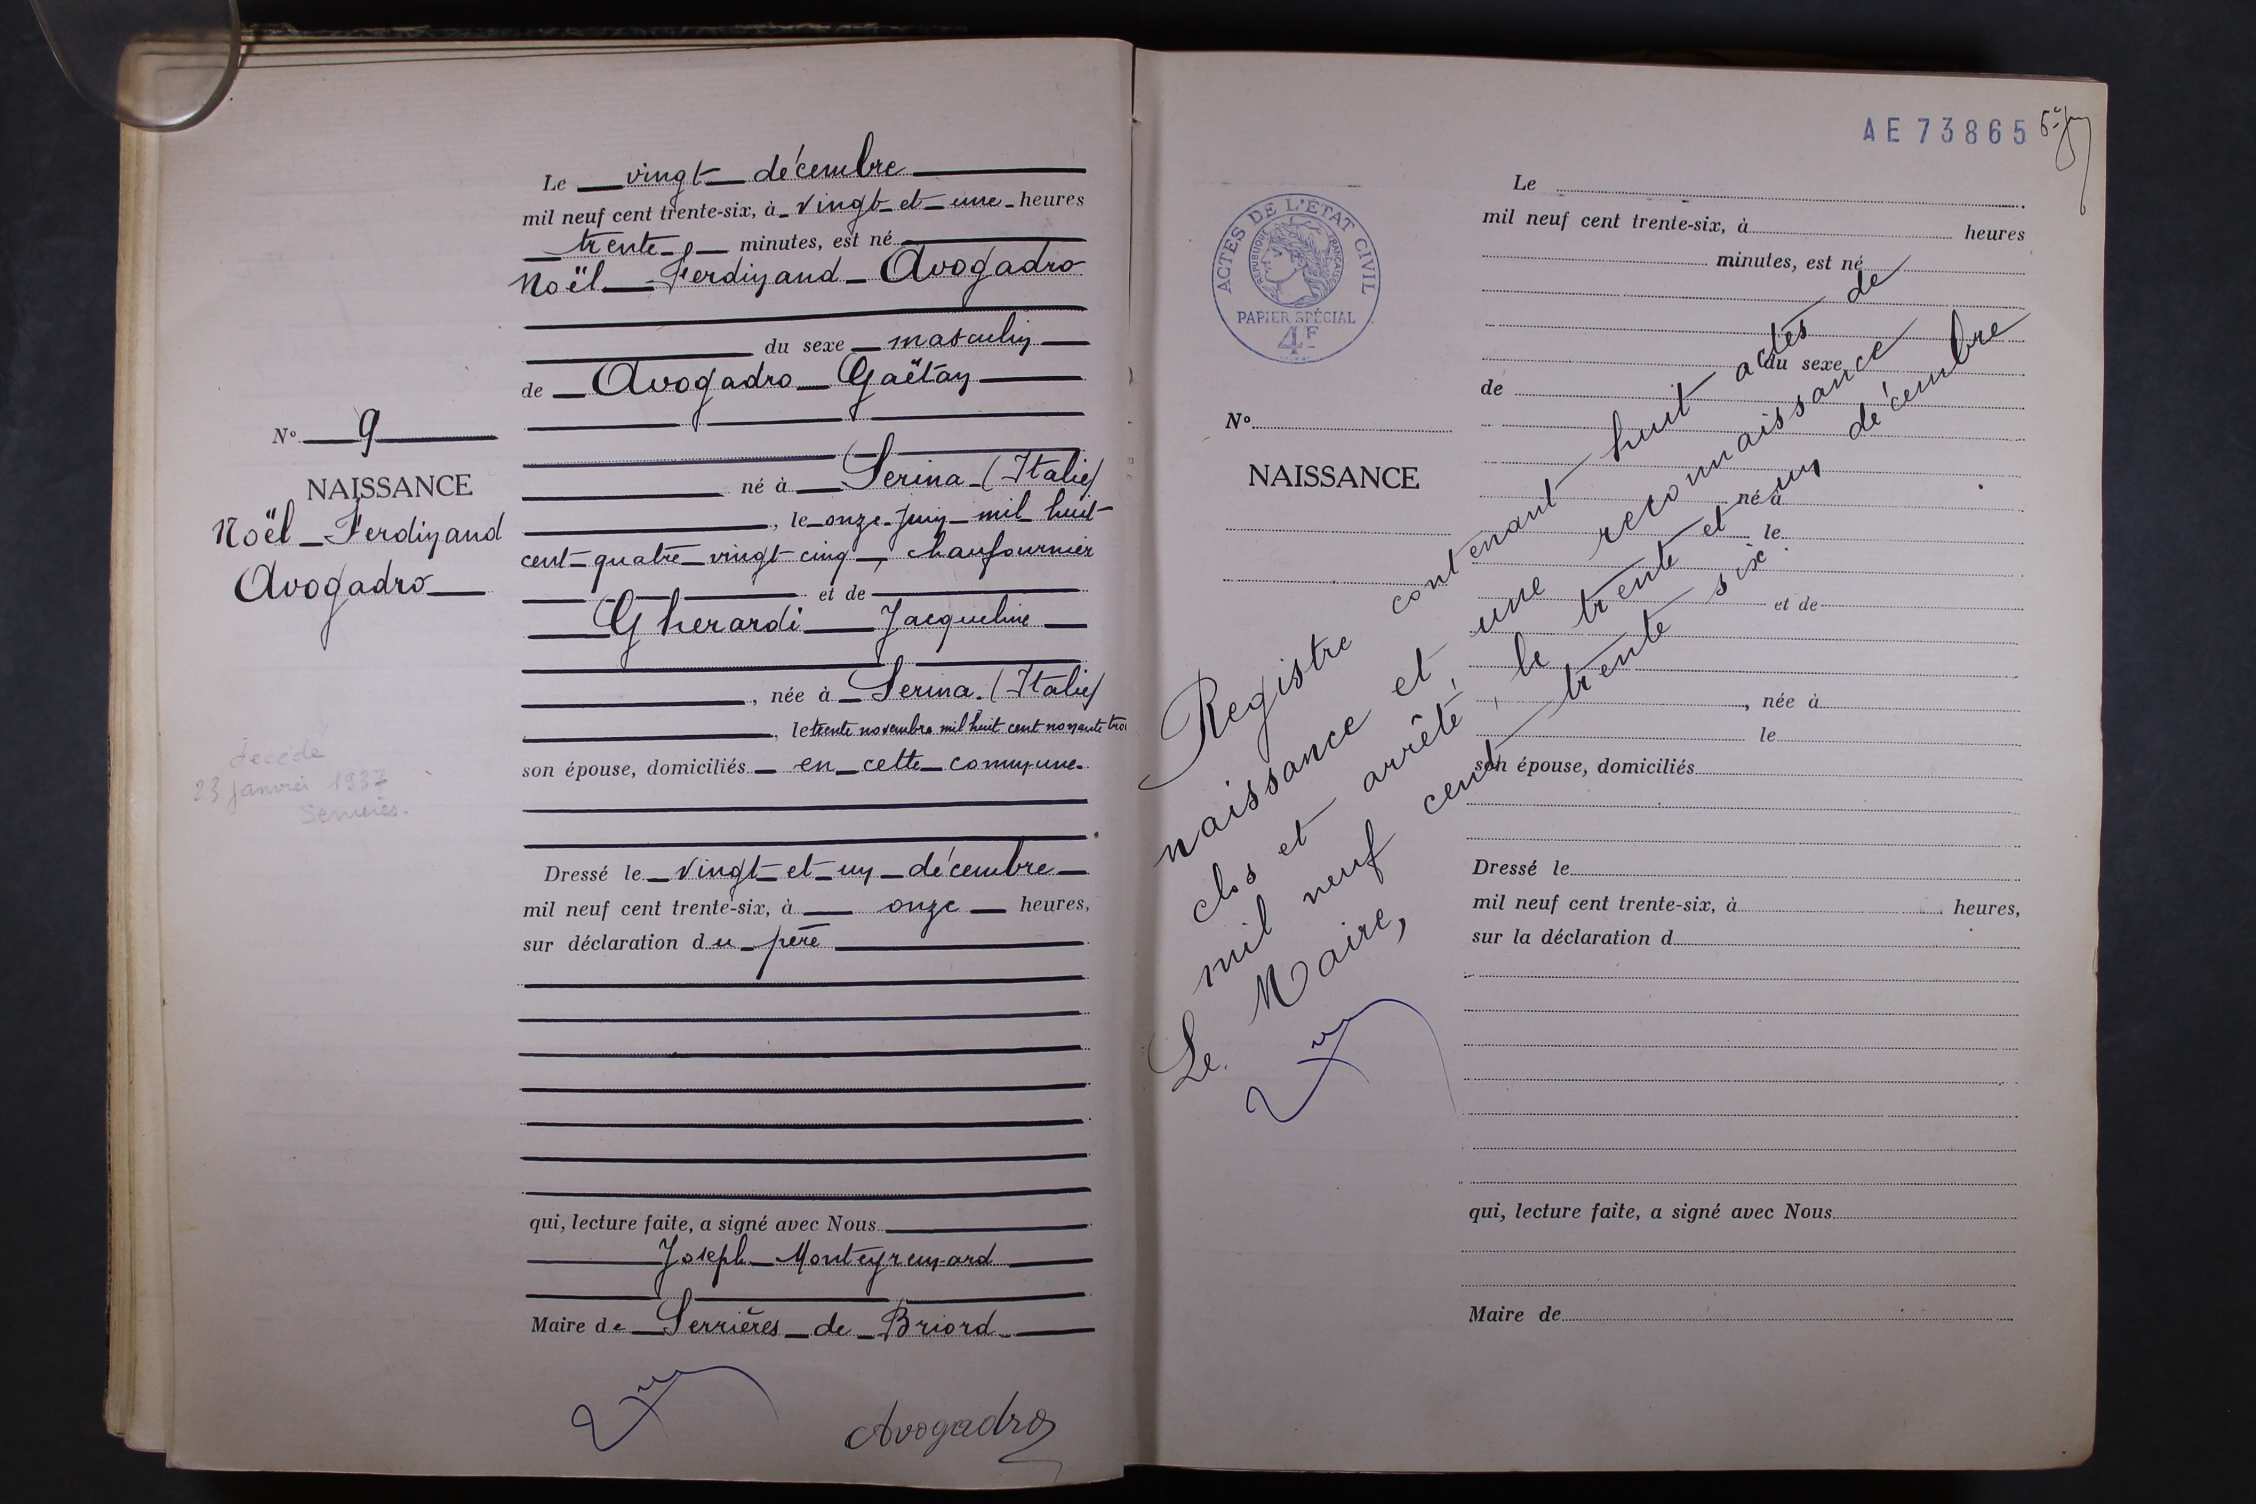 Le vingt décembre
mil neuf cent trente-six, à vingt et une heures
trente minutes, est né
Noël Ferdinand Avogadro
du sexe masculin
de Avogadro Gaëtan
né à Serina (Italie)
, le onze juin mil huit
cent quatre vingt cinq, chaufournier
et de
Gherardi Jacqueline
, née à Serina (Italie)
, le trente novembre mil huit cent nonante trois
son épouse, domiciliés en cette commune
Dressé le vingt et un décembre
mil neuf cent trente-six, à onze heures,
sur déclaration du père
qui, lecture faite, a signé avec Nous
Joseph Monteyremard
Maire de Serrières de Briord
Avogadro
N° 9
NAISSANCE
Noël Ferdinand
Avogadro
décédé
23 janvier 1937
AE 73865
ACTES DE L'ETAT CIVIL
REPUBLIQUE FRANÇAISE
PAPIER SPÉCIAL
4F
Le
mil neuf cent trente-six, à heures
minutes, est né
du sexe
de
N°
NAISSANCE
né à
le
et de
, née à
le
son épouse, domiciliés
Dressé le
mil neuf cent trente-six, à heures,
sur la déclaration d
qui, lecture faite, a signé avec Nous
Maire de
Registre contenant huit actes de
naissance et une reconnaissance
clos et arrêté, le trente et un décembre
mil neuf cent trente six.
Le Maire,